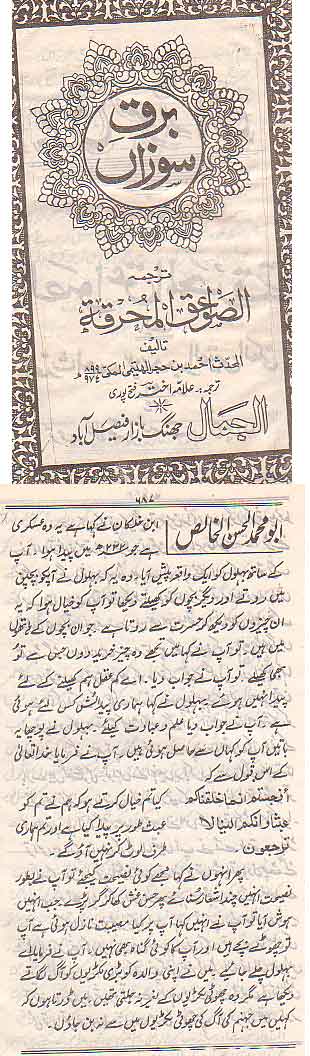 برق
سوزاں
ترجمہ
الصواعق المحرقة
تالیف
المحدث احمد بن حجر الہیتمی المکی ۸۹۹ ۹۷۴ھ
ترجمہ: علامہ اختر فتح پوری
الجمال جھنگ بازار فیصل آباد
۶۸۷
ابو محمد الحسن الخالص
ابن خلکان نے کہا ہے یہ وہ عسکری
ہے جو ۲۳۲ھ میں پیدا ہوا۔ آپ
کے ساتھ بہلول کو ایک واقعہ پیش آیا۔ وہ یہ کہ بہلول نے آپکو بچپن
میں روتے اور دیگر بچوں کو کھیلتے دیکھا تو آپ کو خیال ہوا کہ یہ
ان چیزوں کو دیکھ کر حسرت سے روتا ہے۔ جو ان بچوں کے ہاتھوں
میں ہیں۔ تو آپ نے کہا میں تجھے وہ چیز خرید دوں جس سے تو
بھی کھیلے۔ تو آپ نے جواب دیا۔ اے کم عقل ہم کھیلنے کے لئے
پیدا نہیں ہوئے۔ بہلول نے کہا ہماری پیدائش کس لئے ہوئی
ہے۔ آپ نے جواب دیا علم و عبادت کیلئے۔ بہلول نے پوچھا یہ
باتیں آپ کو کہاں سے حاصل ہوئی ہیں۔ آپ نے فرمایا خدا تعالیٰ
کے اس قول سے کہ
أفحسبتم انما خلقنٰکم کیا تم خیال کرتے ہو کہ ہم نے تم کو
عبثا و انکم الینا لا عبث طور پر پیدا کیا ہے اور تم ہماری
ترجعون۔ طرف لوٹ کر نہیں آؤ گے۔
پھر انہوں نے کہا مجھے کوئی نصیحت کیجئے تو آپ نے بطور
نصیحت انہیں چند اشعار سنائے پھر حسن غش کھا کر گر پڑے جب انہیں
ہوش آیا تو آپ نے انہیں کہا آپ پر کیا مصیبت نازل ہوئی ہے آپ
تو چھوٹے بچے ہیں اور آپ کا کوئی گناہ بھی نہیں۔ آپ نے فرمایا اے
بہلول چلے جائیے میں نے اپنی والدہ کو بڑی لکڑیوں کو آگ لگاتے
دیکھا ہے مگر وہ چھوٹی لکڑیوں کے بغیر نہ جلتی تھیں۔ میں ڈرتا ہوں کہ
کہیں میں جہنم کی آگ کی چھوٹی لکڑیوں میں سے نہ بن جاؤں۔